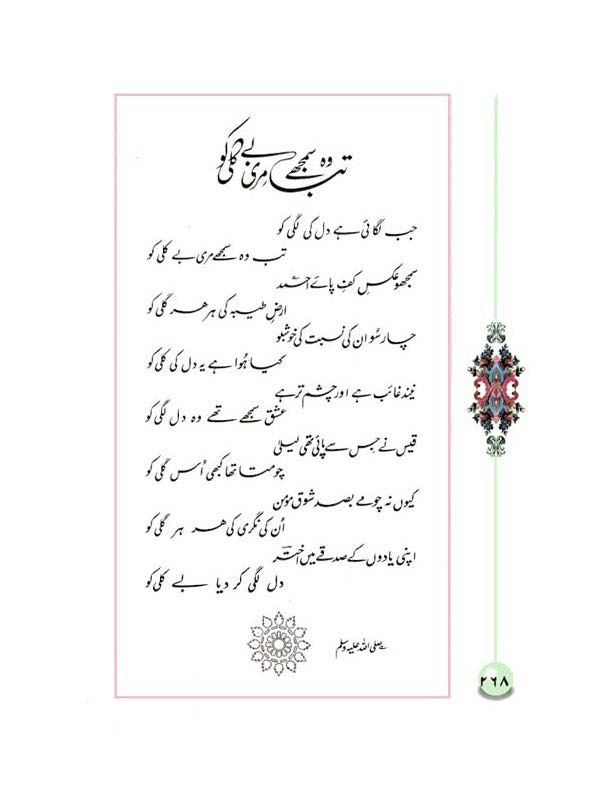 تب وہ سمجھے مری بے کلی کو
جب لگائی ہے دل کی لگی کو
تب وہ سمجھے مری بے کلی کو
سمجھو عکسِ کفِ پائے احمد
ارضِ طیبہ کی ہر ہر گلی کو
چار سُو ان کی نسبت کی خوشبو
کیا ہُوا ہے یہ دل کی کلی کو
نیند غائب ہے اور چشم تر ہے
عشق سمجھے تھے وہ دل لگی کو
قیس نے جس سے پائی تھی لیلیٰ
چومتا تھا کبھی اُس گلی کو
کیوں نہ چومے بصد شوق مؤمن
اُن کی نگری کی ہر ہر گلی کو
اپنی یادوں کے صدقے میں اختر
دل لگی کر دیا بے کلی کو
صلی اللہ علیہ وسلم
۲۶۸